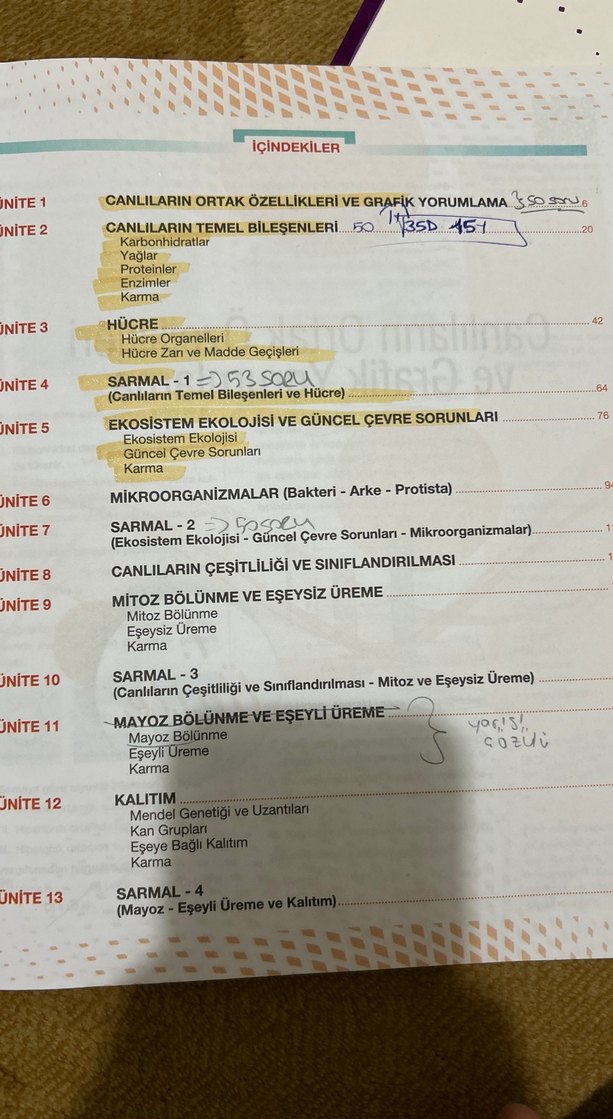 İÇİNDEKİLER
ÜNİTE 1 CANLILARIN ORTAK ÖZELLİKLERİ VE GRAFİK YORUMLAMA 50 soru 6
ÜNİTE 2 CANLILARIN TEMEL BİLEŞENLERİ 50 35D 15Y 20
Karbonhidratlar
Yağlar
Proteinler
Enzimler
Karma
ÜNİTE 3 HÜCRE 42
Hücre Organelleri
Hücre Zarı ve Madde Geçişleri
ÜNİTE 4 SARMAL - 1 => 53 SORU
(Canlıların Temel Bileşenleri ve Hücre) 64
ÜNİTE 5 EKOSİSTEM EKOLOJİSİ VE GÜNCEL ÇEVRE SORUNLARI 76
Ekosistem Ekolojisi
Güncel Çevre Sorunları
Karma
ÜNİTE 6 MİKROORGANİZMALAR (Bakteri - Arke - Protista) 94
ÜNİTE 7 SARMAL - 2 => 50 SORU
(Ekosistem Ekolojisi - Güncel Çevre Sorunları - Mikroorganizmalar)
ÜNİTE 8 CANLILARIN ÇEŞİTLİLİĞİ VE SINIFLANDIRILMASI
ÜNİTE 9 MİTOZ BÖLÜNME VE EŞEYSİZ ÜREME
Mitoz Bölünme
Eşeysiz Üreme
Karma
ÜNİTE 10 SARMAL - 3
(Canlıların Çeşitliliği ve Sınıflandırılması - Mitoz ve Eşeysiz Üreme)
ÜNİTE 11 MAYOZ BÖLÜNME VE EŞEYLİ ÜREME yarısı
Mayoz Bölünme çözülü
Eşeyli Üreme
Karma
ÜNİTE 12 KALITIM
Mendel Genetiği ve Uzantıları
Kan Grupları
Eşeye Bağlı Kalıtım
Karma
ÜNİTE 13 SARMAL - 4
(Mayoz - Eşeyli Üreme ve Kalıtım)